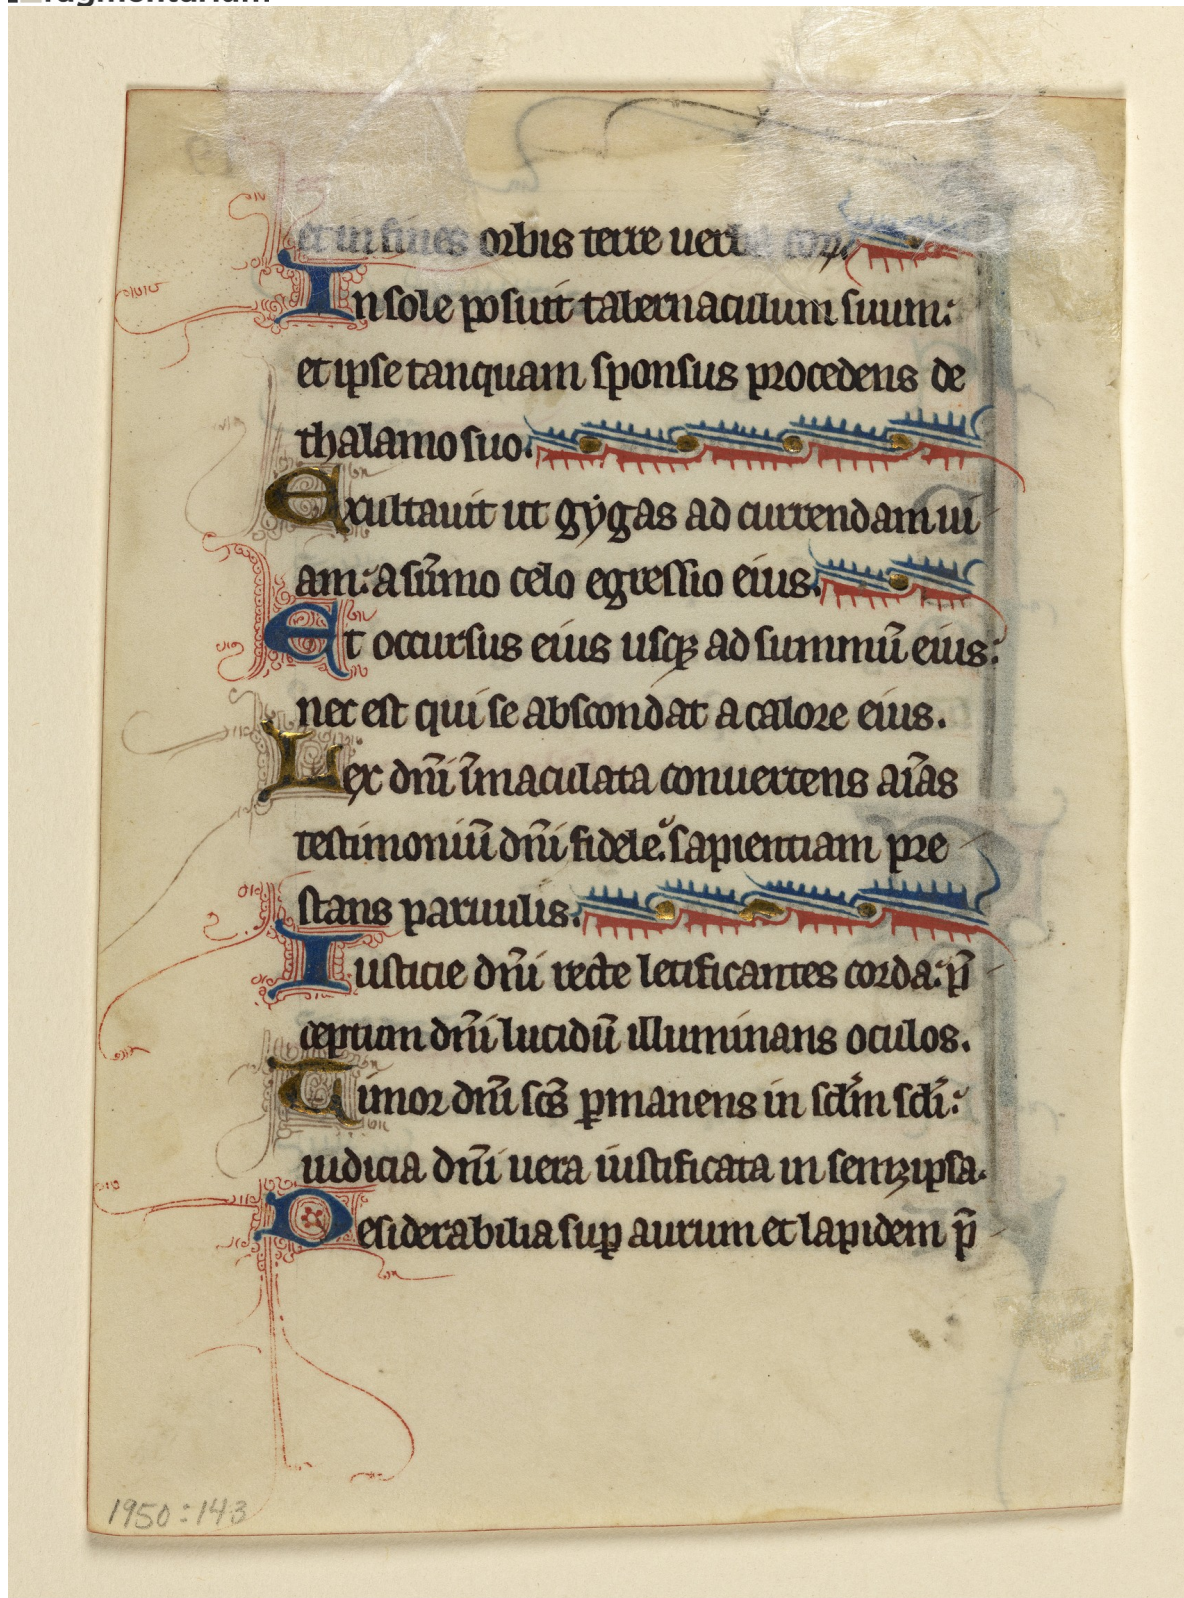 et in fines orbis terre verba eorū
In sole posuit tabernaculum suum:
et ipse tanquam sponsus procedens de
thalamo suo.
Exultauit ut gẏgas ad currendam ui
am: a sūmo celo egressio eius.
Et occursus eius usqꝫ ad summū eius:
nec est qui se abscondat a calore eius.
Lex dn̄i īmaculata conuertens aīas
testimoniū dn̄i fidele: sapientiam pre
stans paruulis.
Iusticie dn̄i recte letificantes corda: p̄
ceptum dn̄i lucidū illuminans oculos.
Timor dn̄i scs̄ ꝑmanens in scl̄m scl̄i:
iudicia dn̄i uera iustificata in semꝫipsa.
Desiderabilia suꝑ aurum et lapidem p̄
1950:143